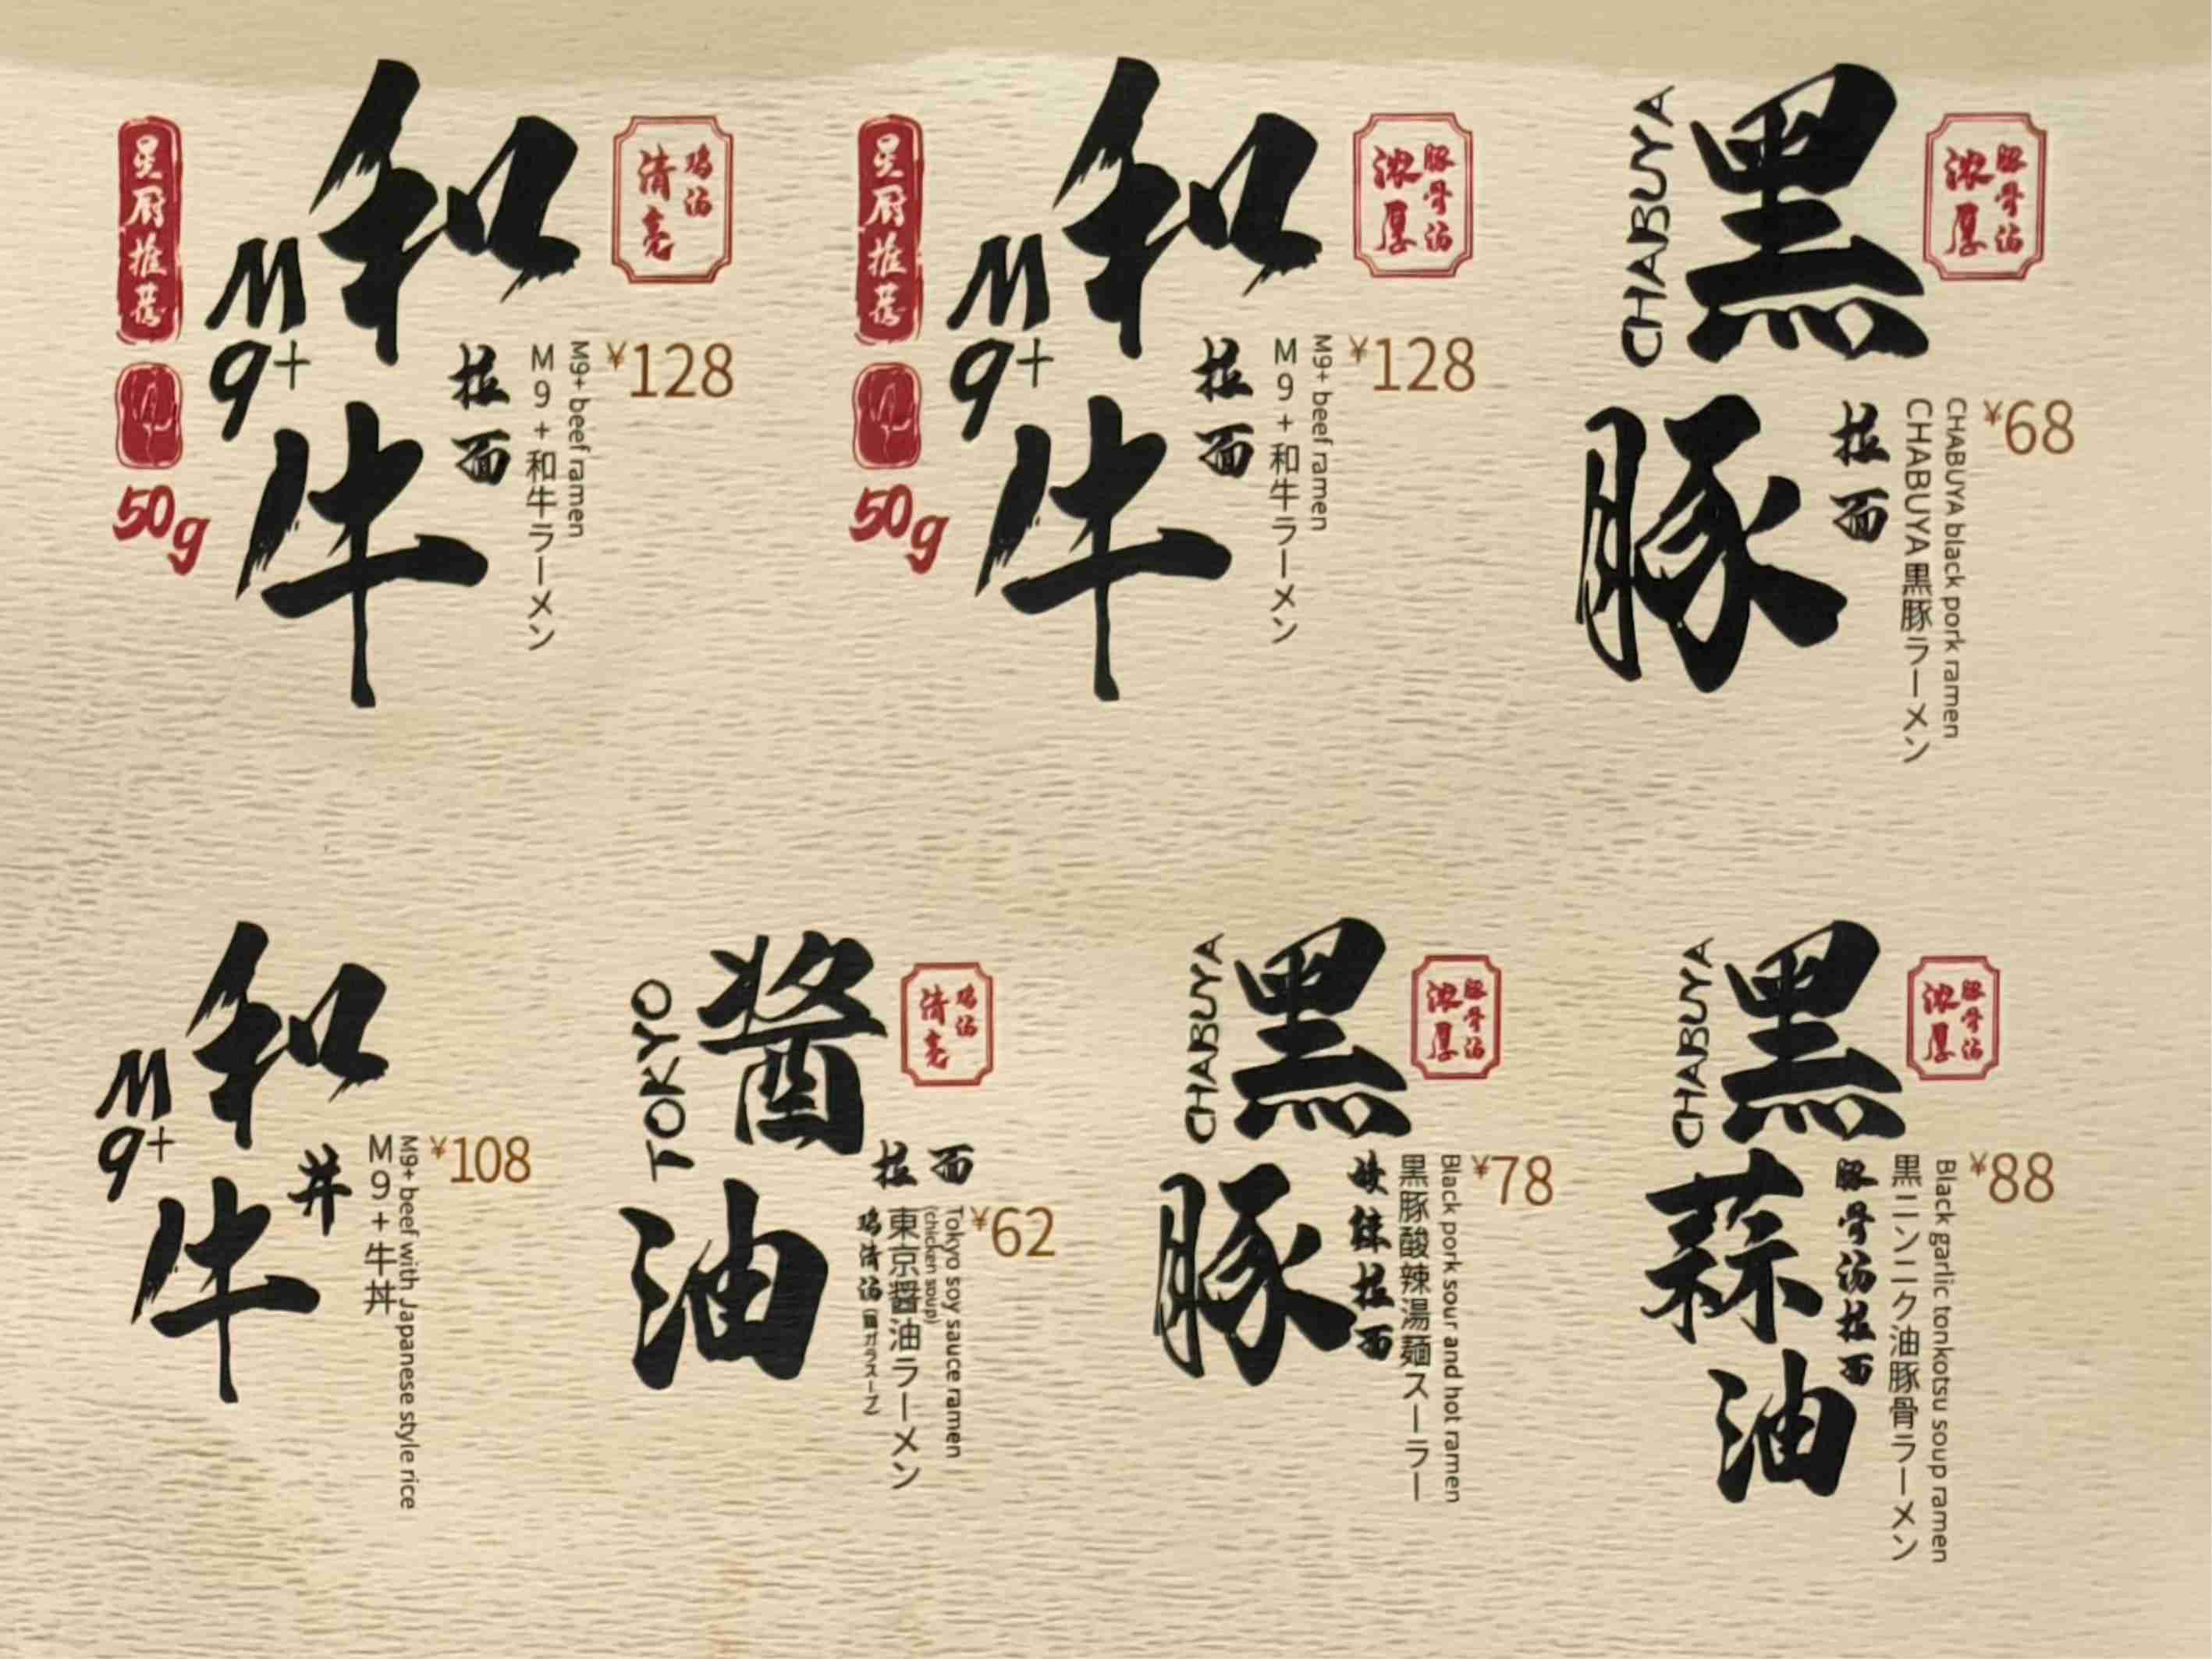 星厨推荐
50g
M9+
和牛
拉面
M9+和牛ラーメン
M9+ beef ramen
鸡汤
清亮
¥128
星厨推荐
50g
M9+
和牛
拉面
M9+和牛ラーメン
M9+ beef ramen
豚骨汤
浓厚
¥128
CHABUYA
黑豚
拉面
CHABUYA黒豚ラーメン
CHABUYA black pork ramen
豚骨汤
浓厚
¥68
M9+
和牛
丼
M9+牛丼
M9+ beef with Japanese style rice
¥108
TOKYO
酱油
拉面
鸡汤
清亮
鸡清汤(鶏ガラスープ)
東京醤油ラーメン
(chicken soup)
Tokyo soy sauce ramen
¥62
CHABUYA
黑豚
酸辣拉面
黒豚酸辣湯麺スーラー
Black pork sour and hot ramen
豚骨汤
浓厚
¥78
CHABUYA
黑蒜油
豚骨汤拉面
黒ニンニク油豚骨ラーメン
Black garlic tonkotsu soup ramen
豚骨汤
浓厚
¥88